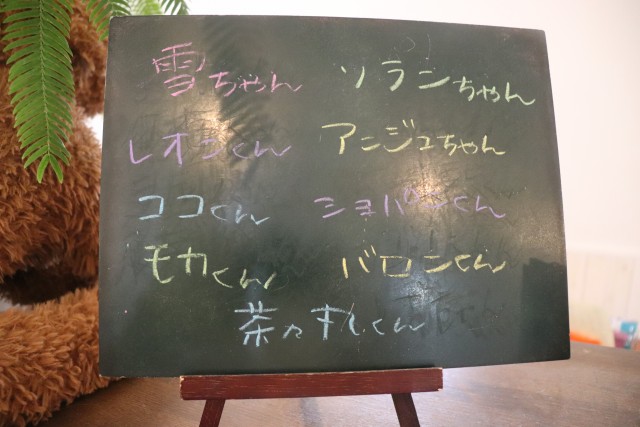 雪ちゃん ソランちゃん
レオンくん アンジュちゃん
ココくん ショパンくん
モカくん バロンくん
茶々丸くん